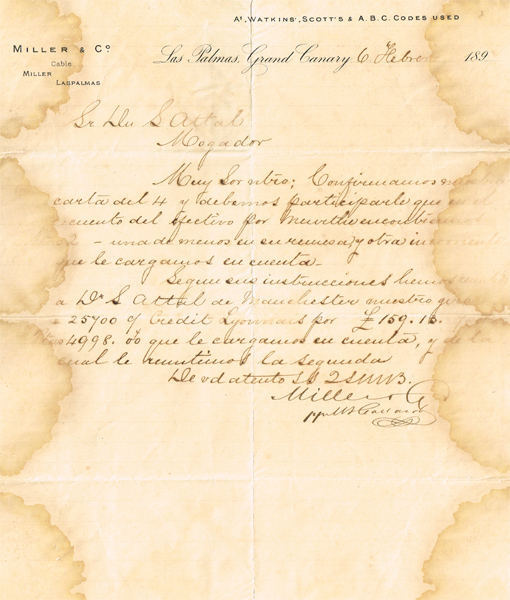 A1, WATKINS', SCOTT'S & A.B.C. CODES USED
MILLER & Co
Cable
MILLER
LASPALMAS
Las Palmas, Grand Canary 6 Febrero 189
Sr Dn S Attal
Mogador
Muy Sor ntro; Confirmamos
carta del 4 y debemos participarle que en el
cuento del efectivo por Meurthe encontramos
- una de menos en su remesa, y otra
que le cargamos en cuenta -
Segun sus instrucciones hemos
a Dn S Attal de Manchester nuestro giro
25700 c/ Crédit Lyonnais por £ 159.13.
4998.00 que le cargamos en cuenta, y de la
cual le remitimos la segunda
De vd atento SS
Miller & Co